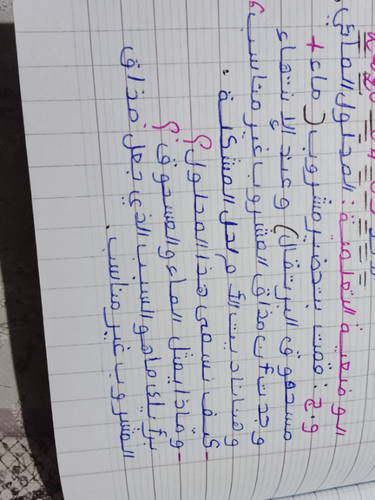 الوضعية التعلمية: المحلول المائي
وج: قمت بتحضير مشروب (ماء +
مسحوق البرتقال) وعند الانتهاء
وجدت أن مذاق المشروب غير مناسب،
وهنا نادت الأم لحل المشكلة.
- كيف نسمي هذا المحلول؟
- وماذا يمثل الماء والمسحوق؟
برأيك ماهو السبب الذي جعل مذاق
المشروب غير مناسب.